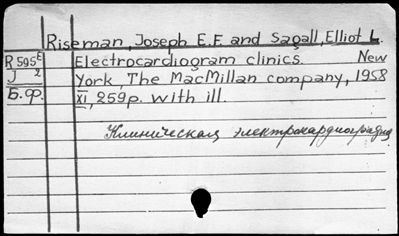 Riseman, Joseph E.F. and Sagall, Elliot L.
R 595E Electrocardiogram clinics. New
J 2 York, The MacMillan company, 1958
Б.ф. XI, 259p. with ill.
Клиническая электрокардиография